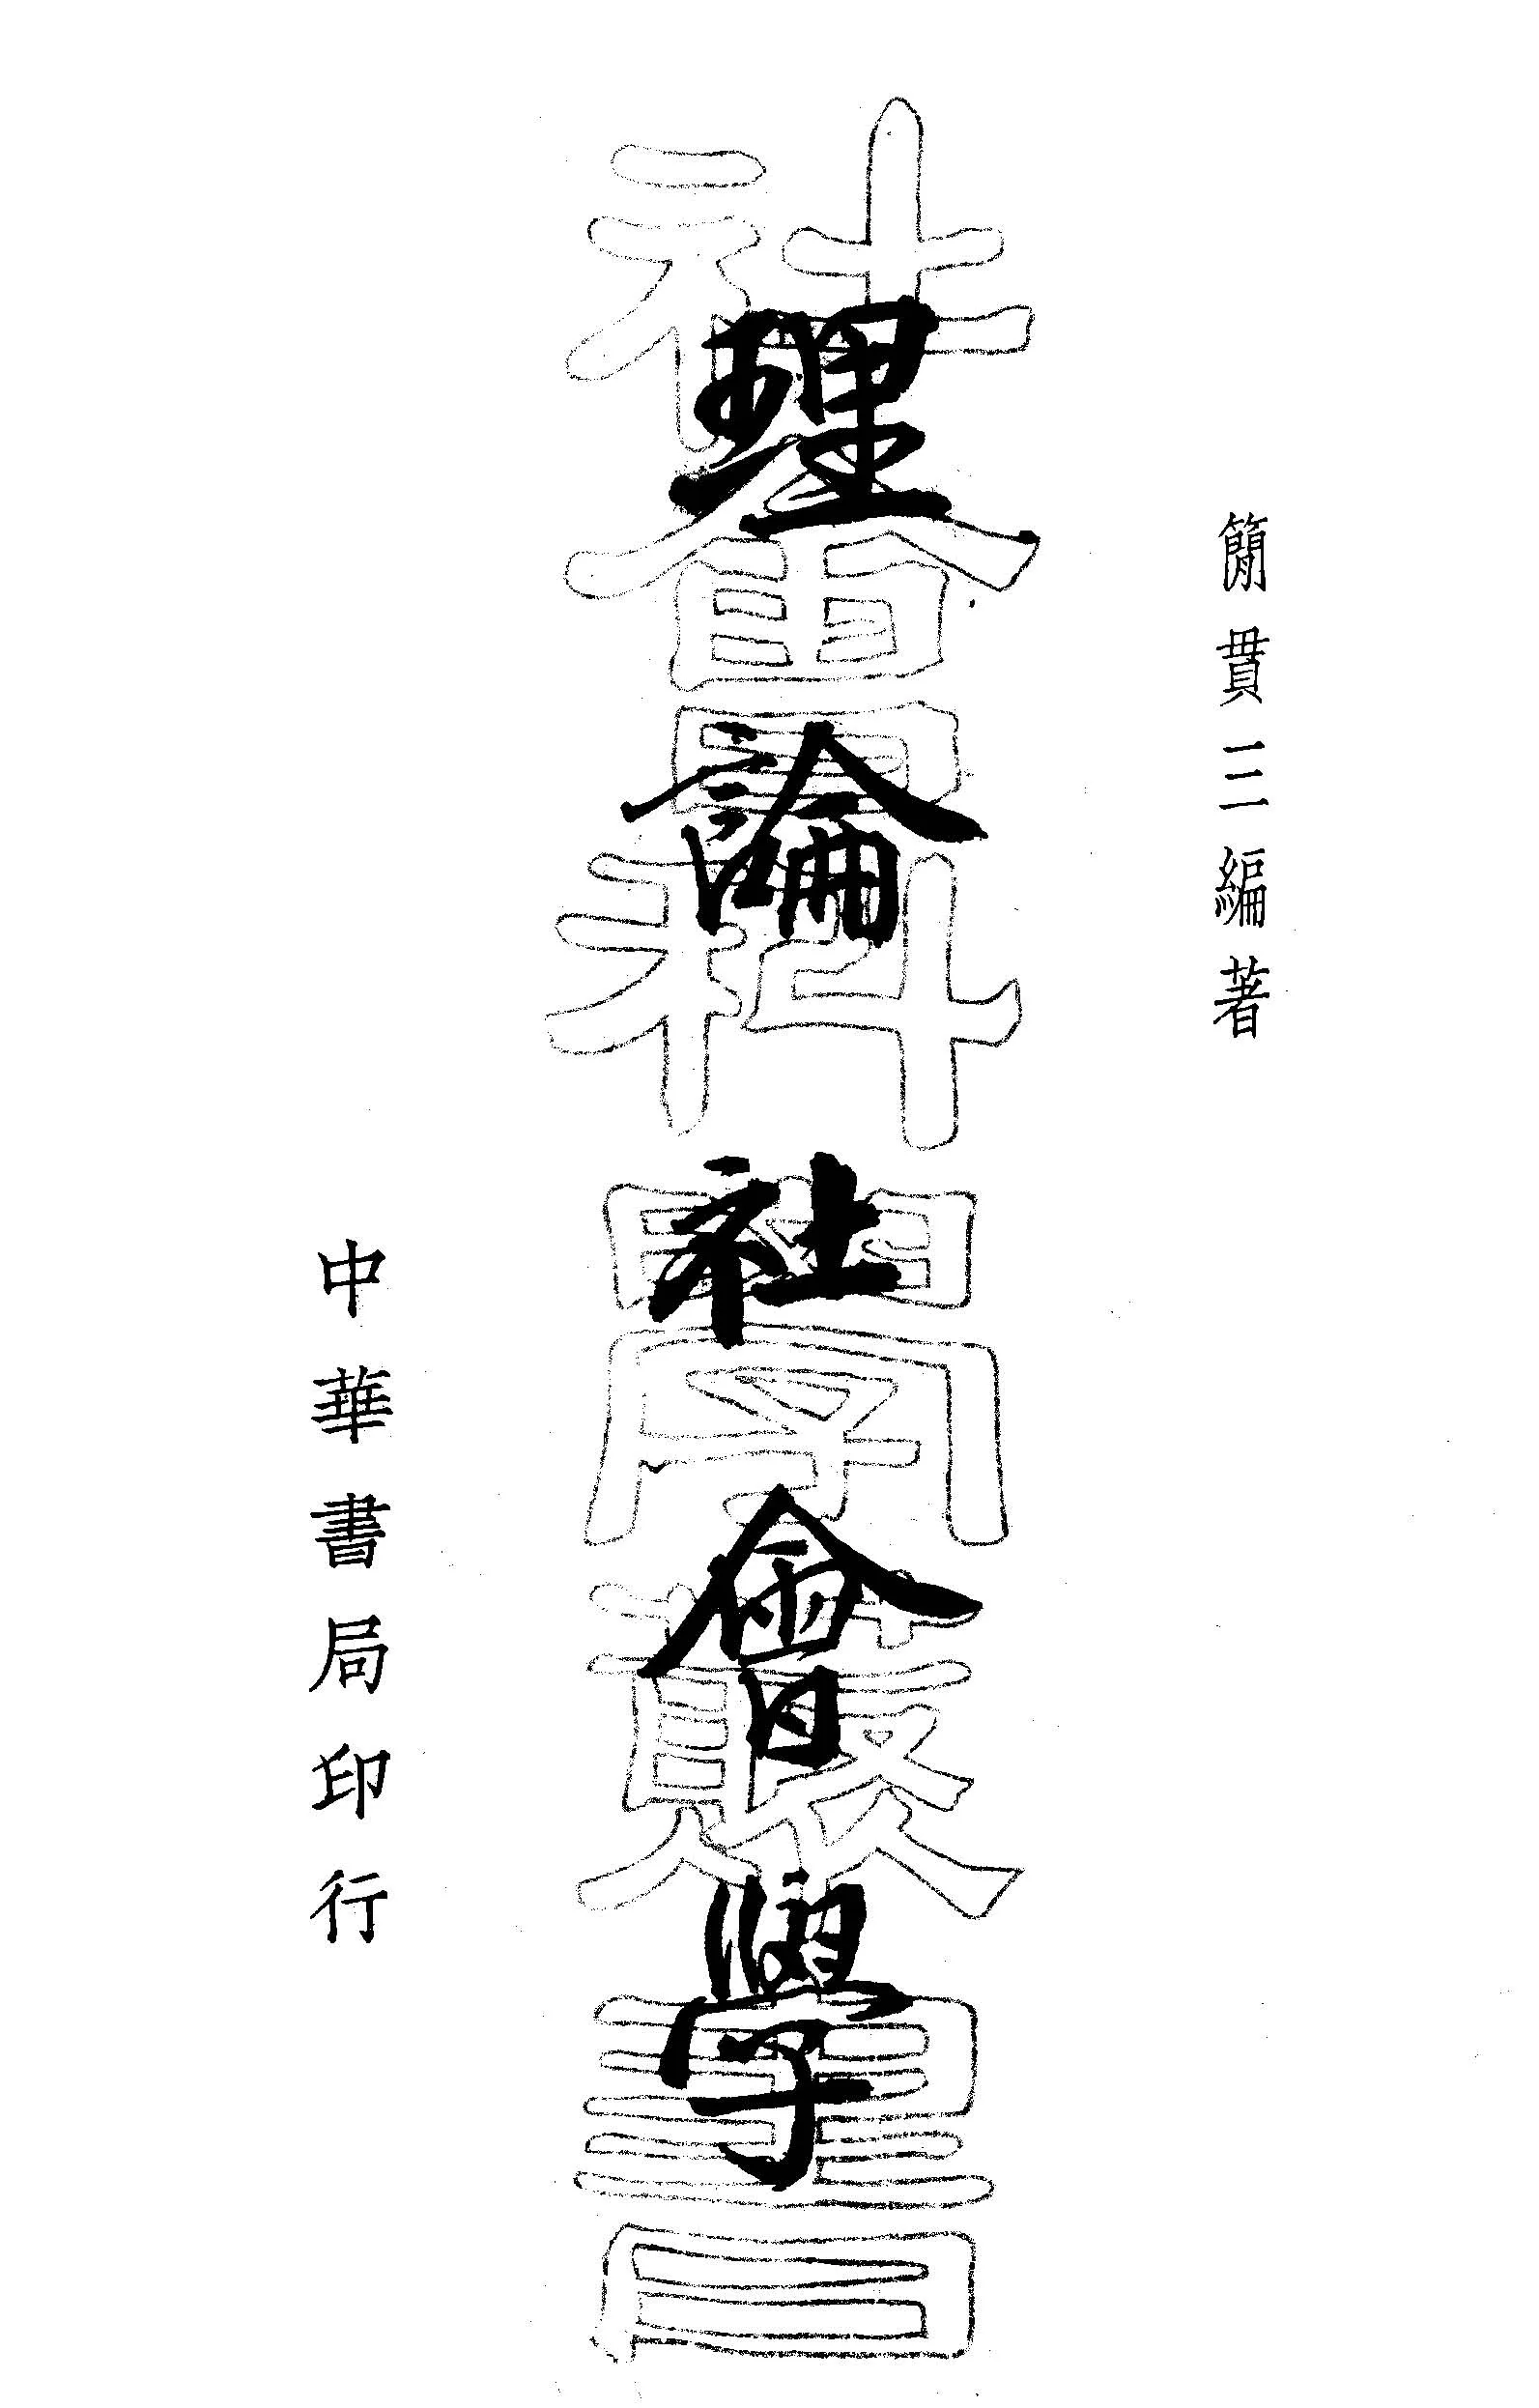 簡貫三編著
理論社會學
社會科學叢書
中華書局印行